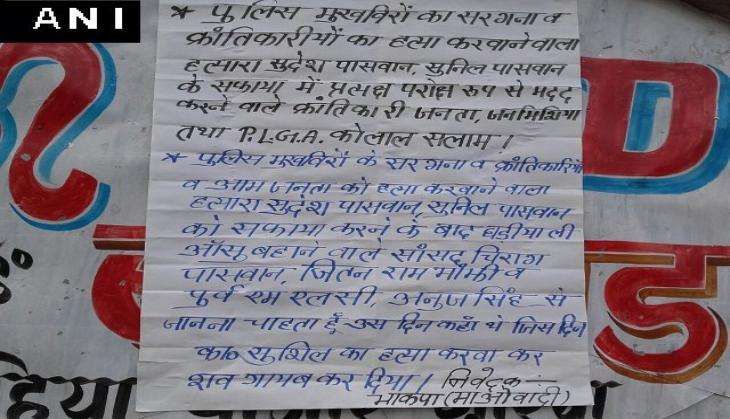 ANI
* पुलिस मुखबिरों का सरगना व
क्रांतिकारीयों का हत्या करवाने वाला
हत्यारा सुदेश पासवान, सुनिल पासवान
के सफाया में प्रत्यक्ष परोक्ष रूप से मदद
करने वाले क्रांतिकारी जनता, जन मिलिशिया
तथा P.L.G.A. को लाल सलाम ।
* पुलिस मुखबिरों के सरगना व क्रांतिकारियों
व आम जनता को हत्या करवाने वाला
हत्यारा सुदेश पासवान, सुनिल पासवान
को सफाया करने के बाद घड़ीयाली
आँसू बहाने वाले सांसद चिराग
पासवान, जितन राम मांझी व
पूर्व एम एल सी, अनुज सिंह से
जानना चाहता हूँ उस दिन कहाँ थे जिस दिन
का० सुशिल का हत्या करवा कर
शव गायब कर दिया। निवेदक :-
भाकपा (माओवादी)